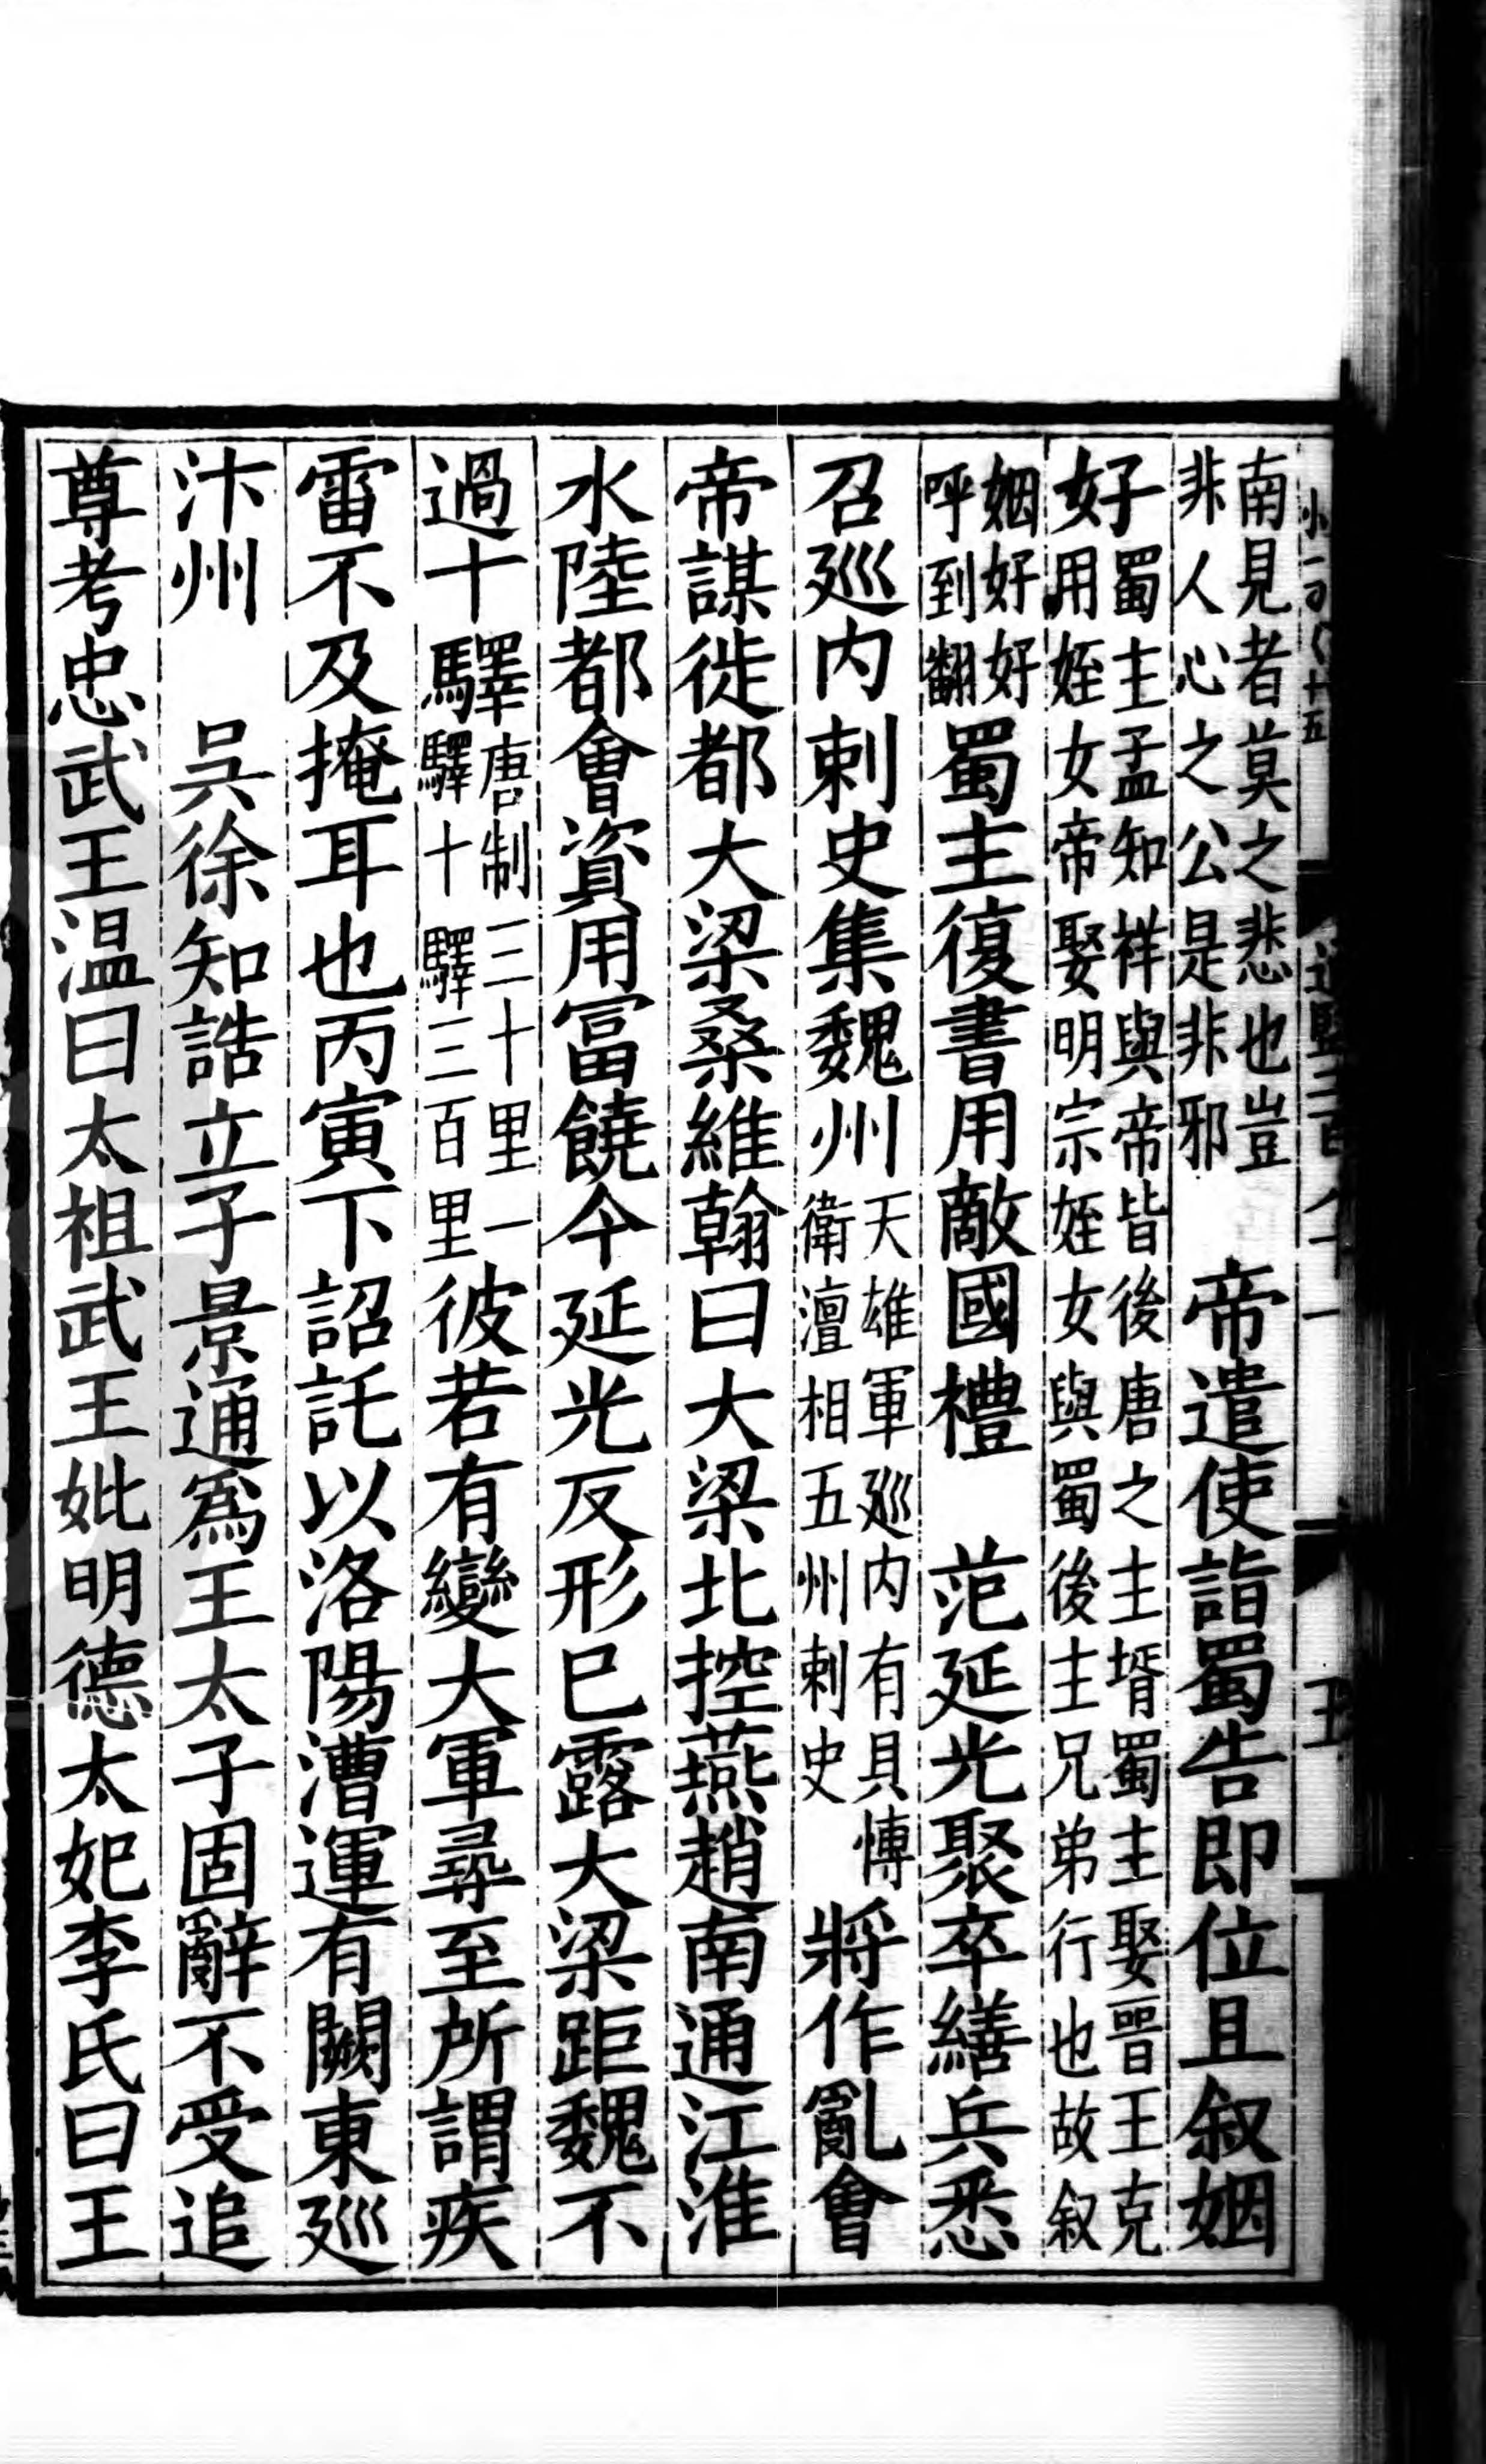 南見者莫之悲也豈非人心之公是非邪　帝遣使詣蜀告即位且叙姻
好蜀主孟知祥與帝皆後唐之主壻蜀主娶晉王克用姪女帝娶明宗姪女與蜀後主兄弟行也故叙
姻好好呼到翻蜀主復書用敵國禮　范延光聚卒繕兵悉
召廵内刺史集魏州天雄軍廵内有貝博衛澶相五州刺史將作亂會
帝謀徙都大梁桑維翰曰大梁北控燕趙南通江淮
水陸都會資用冨饒今延光反形已露大梁距魏不
過十驛唐制三十里一驛十驛三百里彼若有變大軍尋至所謂疾
雷不及掩耳也丙寅下詔託以洛陽漕運有闕東廵
汴州　吳徐知誥立子景通爲王太子固辭不受追
尊考忠武王温曰太祖武王妣明德太妃李氏曰王